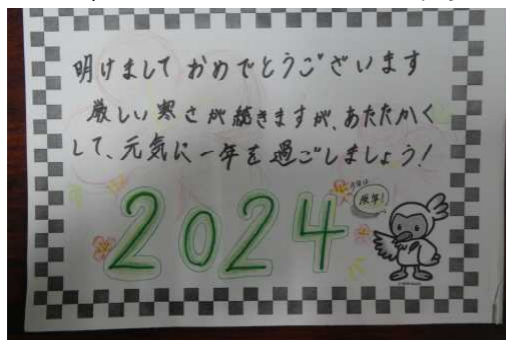 明けましておめでとうございます
厳しい寒さが続きますが、あたたかく
して、元気に一年を過ごしましょう!
2024
辰年!